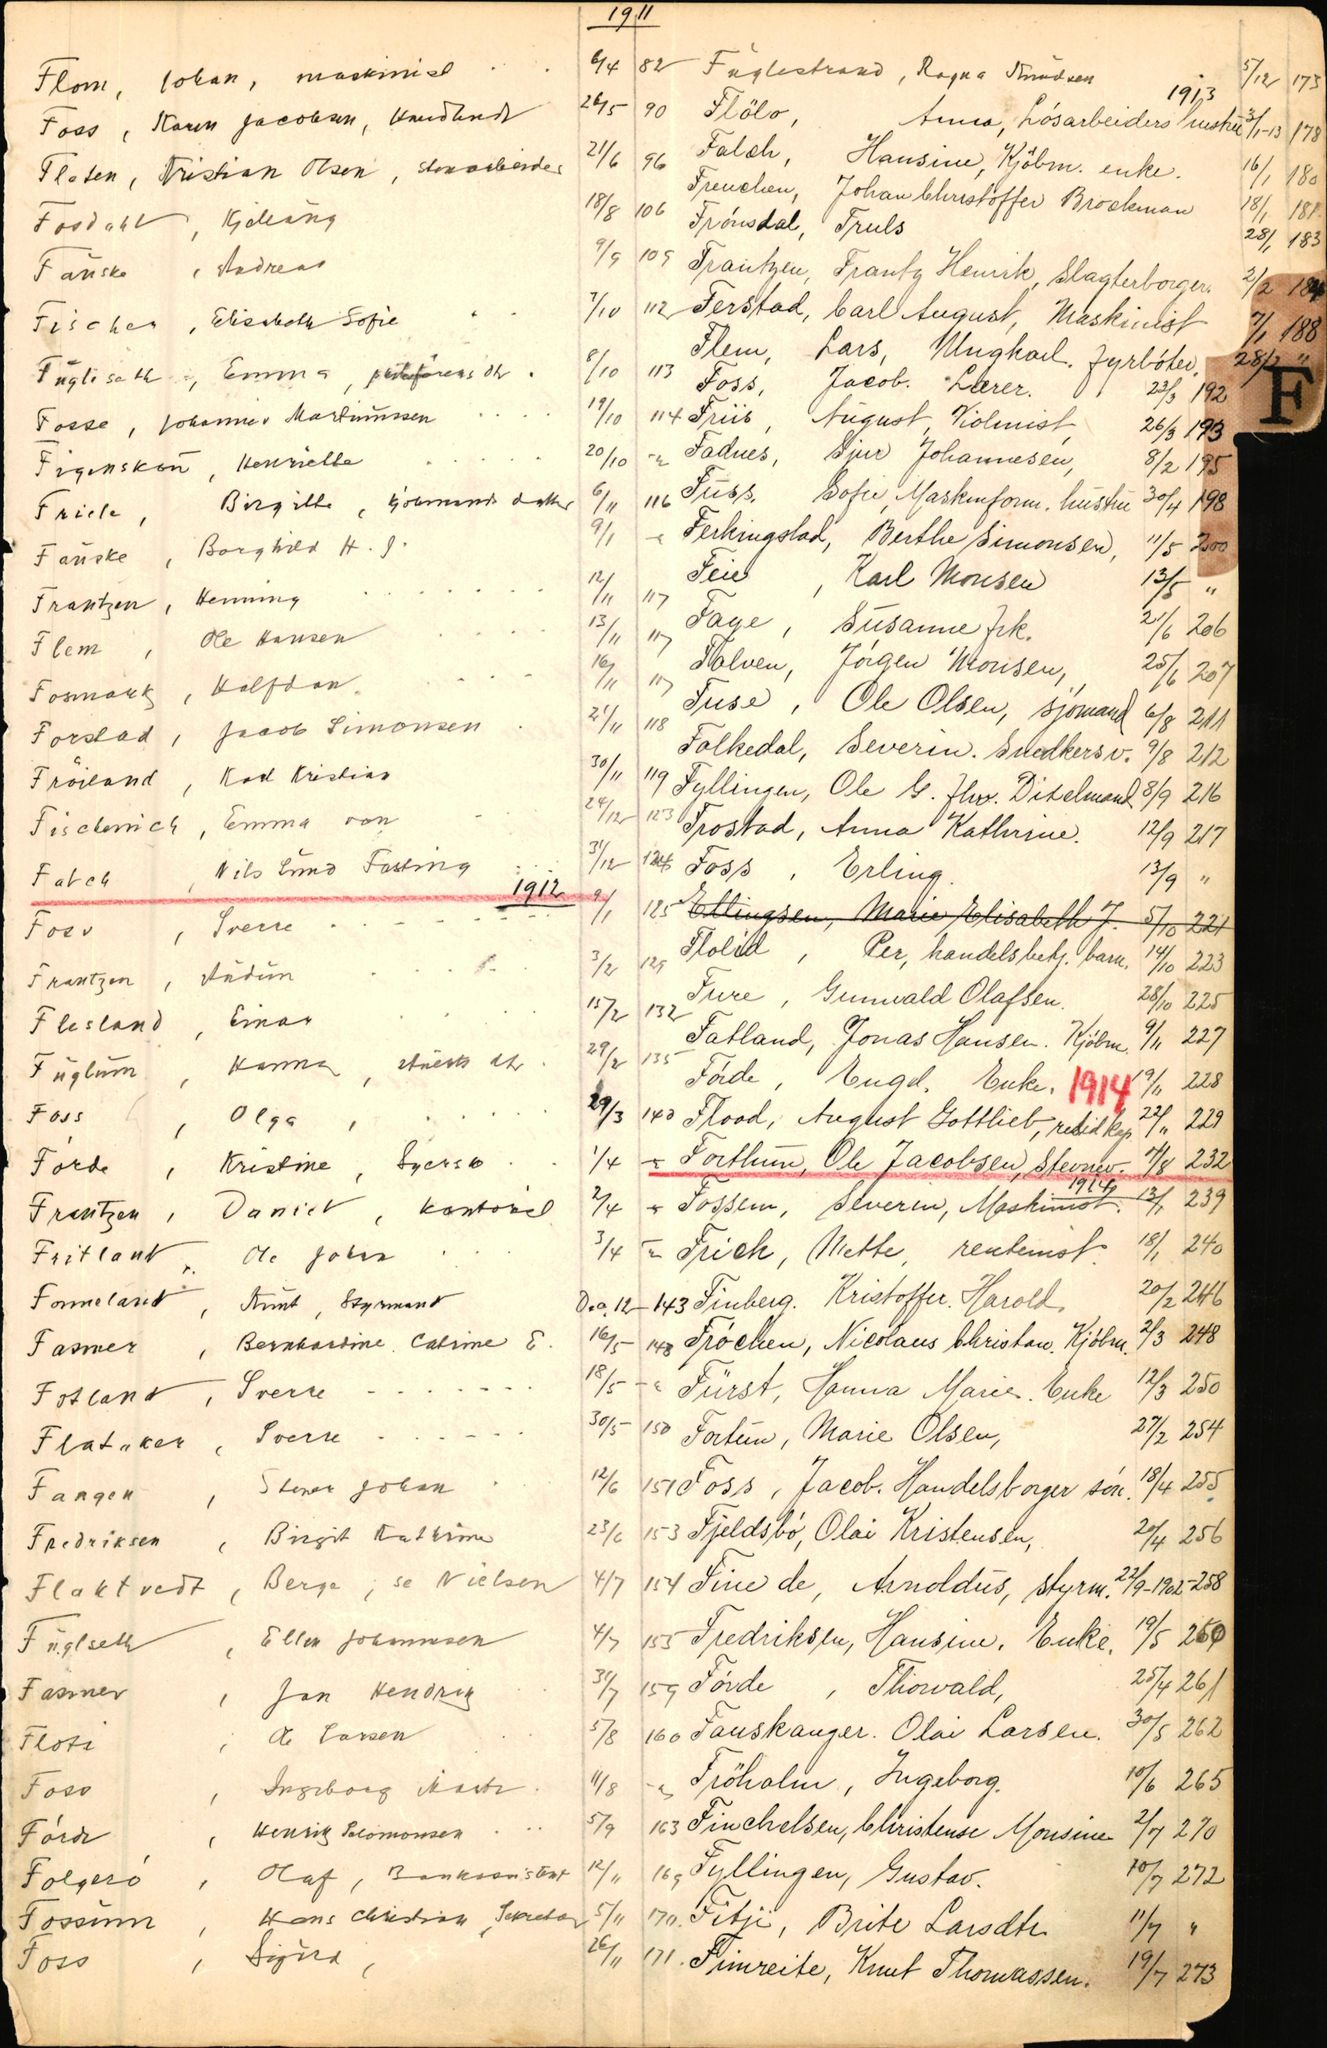 1911
Flom, Johan, maskinist 6/4 82
Foss, Karen Jacobsen, 26/5 90
Flaten, Kristian Olsen, stenarbeider 21/6 96
Fosdahl, 18/8 106
Fanske, Andreas 9/9 109
Fischer, Elisabeth Sofie 7/10 112
Fügliseth, Emma, 8/10 113
Fosse, Johannes Martinussen 19/10 114
Figenskou, Henriette 20/10 "
Friele, Birgitte, kjöbmands datter 6/11 116
Fauske, Borghild H. J. 9/1 "
Frantzen, Henning 12/11 117
Flem, Ole Hansen 13/11 117
Fosmark, Halfdan 16/11 117
Forstad, Jacob Simonsen 21/11 118
Fröiland, Karl Kristian 30/11 119
Fischenich, Emma von 24/12 123
Falch, Nils Lund Fasting 31/12 124
1912
Foss, Sverre 9/1 125
Frantzen, Audun 3/2 129
Flesland, Einar 15/2 132
Füglum, Hanna, 29/2 135
Foss, Olga, 29/3 140
Förde, Kristine, Syerske 1/4 "
Frantzen, Daniel, kontorist 2/4 "
Fritland, Ole Johan 3/4 "
Fonneland, Knut, Styrmand Dec. 12 - 143
Fasmer, Bernhardine Catrine E. 16/5 148
Fotland, Sverre 18/5 "
Flataker, Sverre 30/5 150
Fangen, Johan 12/6 151
Fredriksen, Birgit Kathrine 23/6 153
Flaktvedt, Berge, se Nielsen 4/7 154
Füglseth, Ellen Johannesen 4/7 155
Fasmer, Jan Hendrik 31/7 159
Floti, Ole Larsen 5/8 160
Foss, Ingeborg Marie 11/8 "
Förde, Henrik Salomonsen 5/9 163
Folgerö, Olaf, Bankassistent 12/11 169
Fossum, Hans Christian, Sekretær 5/11 170
Foss, Sigurd, 26/11 171
Füglestrand, Ragna Knudsen 5/12 173
1913
Flölo, Anna, Lösarbeiders hustru 3/1-13 178
Falch, Hansine, Kjöbm. enke. 16/1 180
Frenchen, Johan Christoffer Brockman 18/1 181
Frönsdal, Truls 28/1 183
Frantzen, Frantz Henrik, Slagterborger. 2/2 184
Ferstad, Carl August, Maskinist 7/1 188
Flem, Lars, Ungkarl. Fyrböter. 28/2 "
F
Foss, Jacob. Lærer. 23/3 192
Friis, August, Violinist, 26/3 193
Fadnes, Sjur Johannesen, 8/2 195
Fuss. Sofie, Maskinform. hustru 30/4 198
Ferkingstad, Berthe Simonsen, 11/5 200
Feie, Karl Monsen 13/5 "
Faye, Susanne frk. 21/6 206
Falven, Jörgen Monsen, 25/6 207
Fuse, Ole Olsen, sjömand 6/8 211
Folkedal, Severin. Snedkersv. 9/8 212
Fyllingen, Ole G. fhv. Ditelmand 8/9 216
Frostad, Anna Kathrine. 12/9 217
Foss, Erling. 13/9 "
Ellingsen, Marie Elisabeth J. 5/10 221
Flolid, Per, handelsbetj. barn. 14/10 223
Fure, Gunvald Olafsen. 28/10 225
Fatland, Jonas Hansen. Kjöbm. 9/11 227
Förde, Engel. Enke. 19/11 228
1914
Flood, August Gottlieb, resid kap 22/11 229
Forthun, Ole Jacobsen, Stevnev. 11/8 232
1914
Fossem, Severin, Maskinist. 13/1 239
Frich, Mette, rentenist. 18/1 240
Finberg. Kristoffer. Harold. 20/2 246
Fröchen, Nicolaus Christian. Kjöbm. 2/3 248
Fürst, Hanna Marie. Enke 12/3 250
Fortun, Marie Olsen, 27/2 254
Foss, Jacob. Handelsborger sön. 18/4 255
Fjeldsbö, Olai Kristensen, 20/4 256
Fine de, Arnoldus, styrm. 22/9-1902-258
Fredriksen, Hansine. Enke. 19/5 260
Förde, Thorvald, 25/4 261
Fauskanger. Olai Larsen. 30/5 262
Fröholm, Ingeborg. 10/6 265
Finchelsen, Christense Monsine 2/7 270
Fyllingen, Gustav. 10/7 272
Fitje, Brite Larsdtr. 11/7 "
Fimreite, Knut Thomassen. 19/7 273